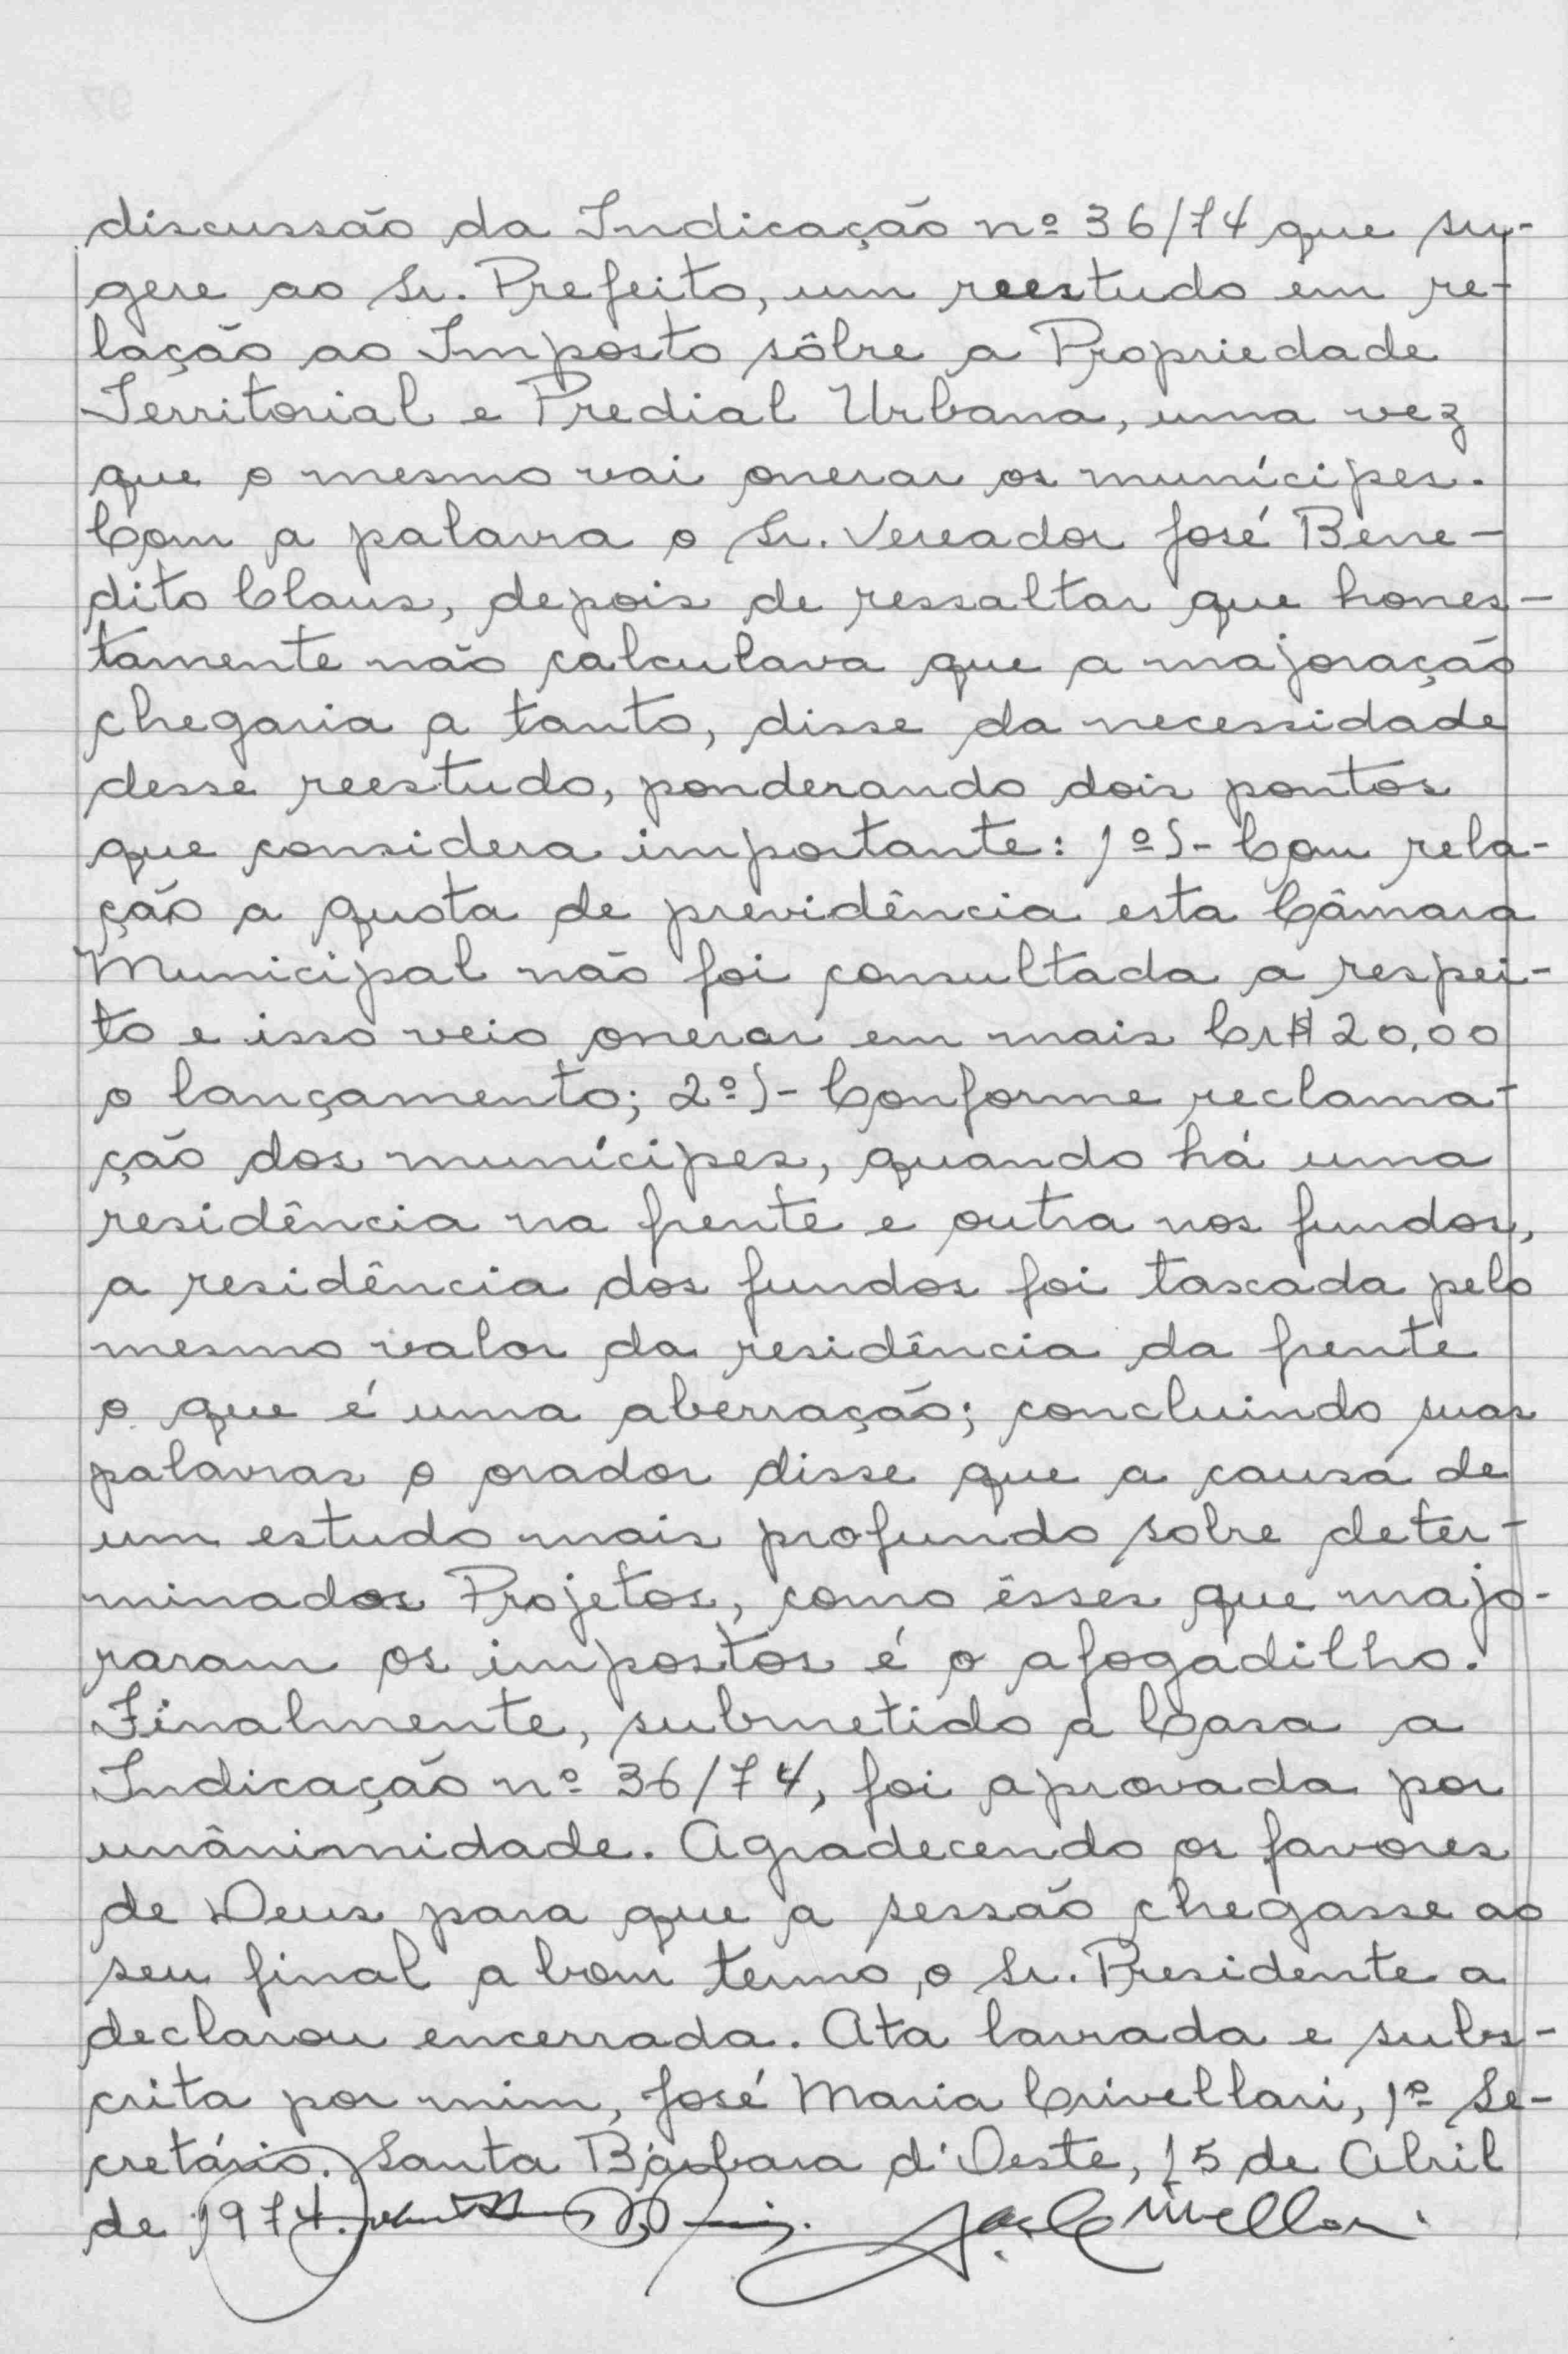 discussão da Indicação nº 36/74 que su-
gere ao Sr. Prefeito, um reestudo em re-
lação ao Imposto sôbre a Propriedade
Territorial e Predial Urbana, uma vez
que o mesmo vai onerar os munícipes.
Com a palavra o Sr. Vereador José Bene-
dito Claus, depois de ressaltar que hones-
tamente não calculava que a majoração
chegaria a tanto, disse da necessidade
desse reestudo, ponderando dois pontos
que considera importante: 1º)- Com rela-
ção a quota de previdência esta Câmara
Municipal não foi consultada a respei-
to e isso veio onerar em mais Cr$ 20,00
o lançamento; 2º)- Conforme reclama-
ção dos munícipes, quando há uma
residência na frente e outra nos fundos,
a residência dos fundos foi taxada pelo
mesmo valor da residência da frente
o que é uma aberração; concluindo suas
palavras o orador disse que a causa de
um estudo mais profundo sobre deter-
minados Projetos, como êsses que majo-
raram os impostos é o afogadilho.
Finalmente, submetido a Casa a
Indicação nº 36/74, foi aprovada por
unânimidade. Agradecendo os favores
de Deus para que a sessão chegasse ao
seu final a bom termo, o Sr. Presidente a
declarou encerrada. Ata lavrada e subs-
crita por mim, José Maria Crivellari, 1º Se-
cretário. Santa Bárbara d'Oeste, 15 de Abril
de 1974.